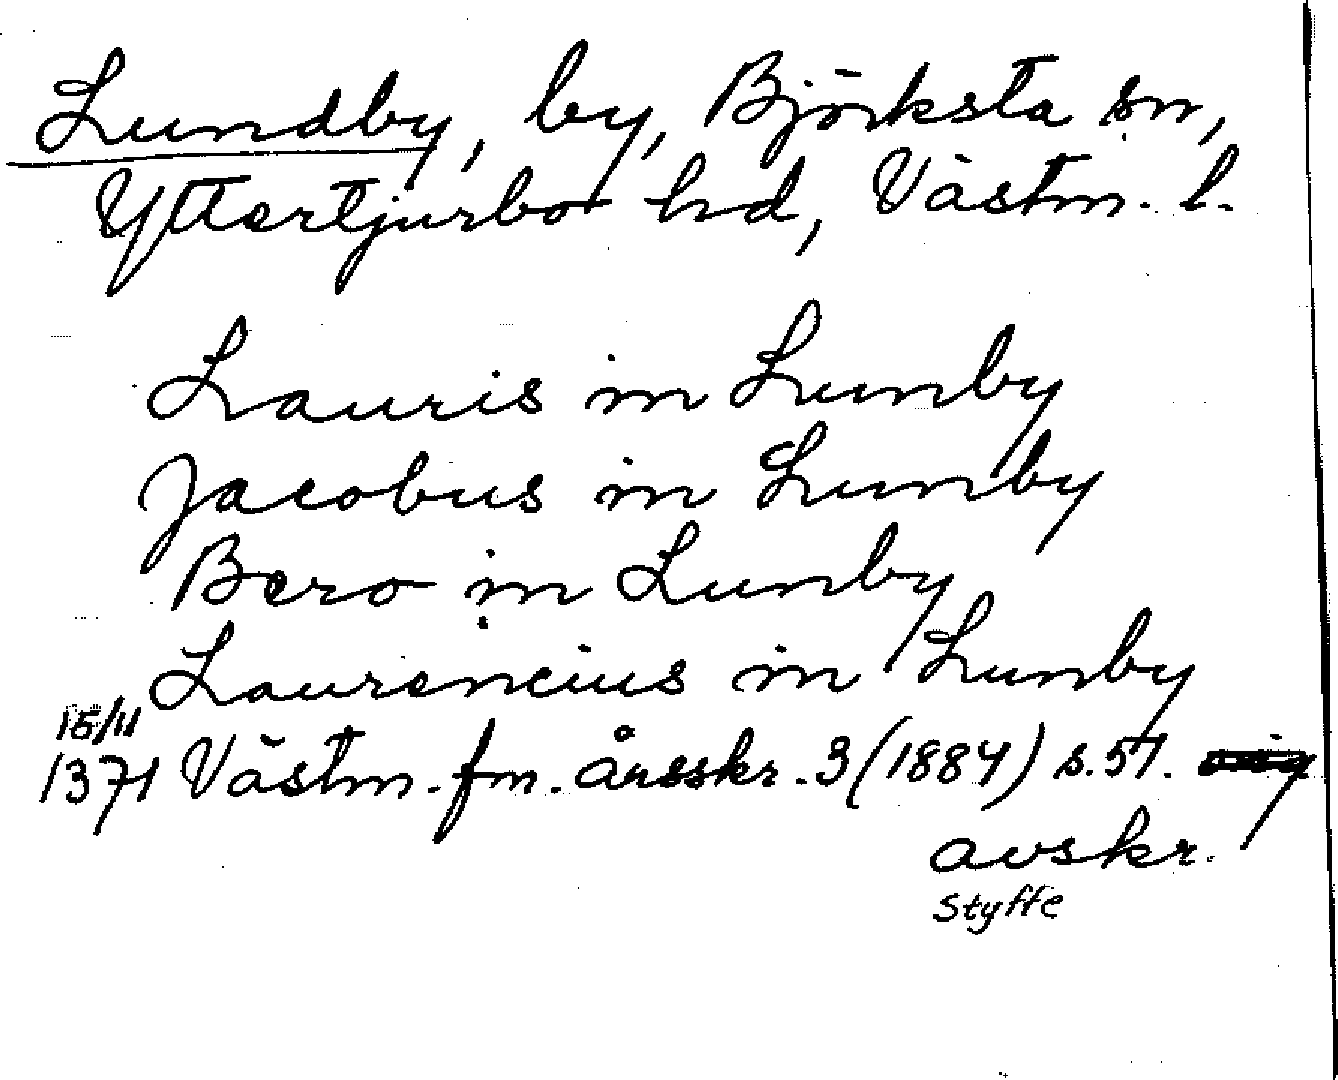 Lundby, by, Björksta sn,
Yttertjurbo hd, Västm. l.
Lauris in Lunby
Jacobus in Lunby
Bero in Lunby
Laurencius in Lunby
15/11
1371 Västm. fm. årsskr. 3 (1884) s. 57.
avskr.
Styffe